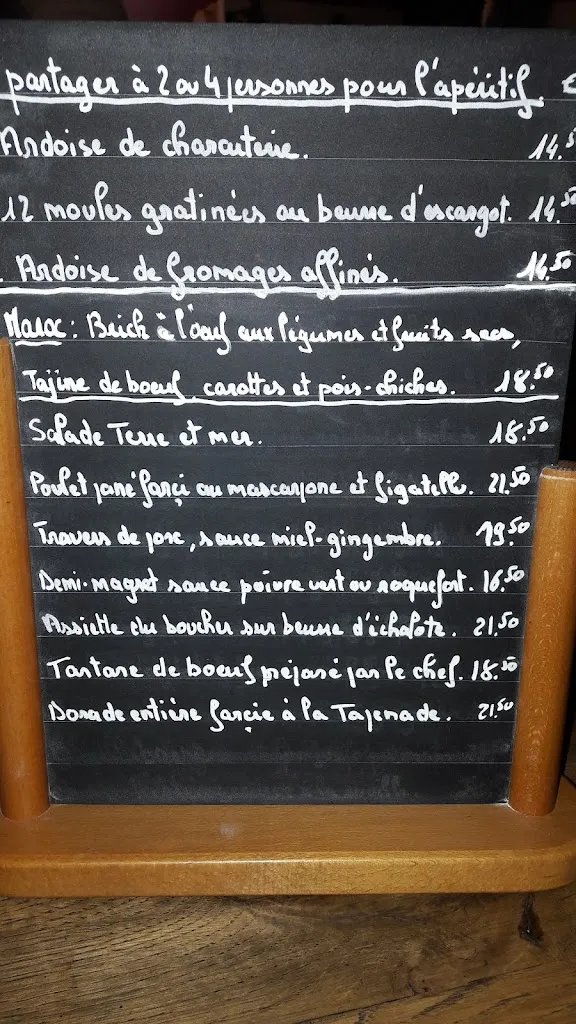 partager à 2 ou 4 personnes pour l'apéritif. €
Ardoise de charcuterie. 14.5
12 moules gratinées au beurre d'escargot. 14.50
. Ardoise de fromages affinés. 14.50
Maroc : Brick à l'oeuf aux légumes et fruits secs,
Tajine de boeuf, carottes et pois-chiches. 18.50
Salade Terre et mer. 18.50
Poulet pané farçi au mascarpone et figatelli. 21.50
Travers de porc, sauce miel-gingembre. 19.50
Demi-magret sauce poivre vert ou roquefort. 16.50
Assiette du boucher sur beurre d'échalote. 21.50
Tartare de boeuf préparé par le chef. 18.50
Dorade entière farçie à la Tapenade. 21.50